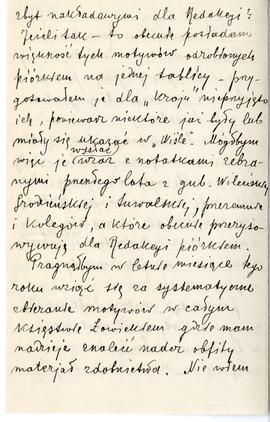 zbyt nakładowymi dla Redakcyi?
Jeżeli tak – to obecnie posiadam
większość tych motywów odrobionych
piórkiem na jednej tablicy – przy-
gotowałem je dla „Kraju" nieprzyjęto
ich, ponieważ niektóre już były lub
miały się ukazać w „Wiśle". Mógłbym
wysłać
więc je wraz z notatkami zebra-
nymi przeszłego lata z gub. Wileńskiej
Grodzieńskiej i Suwalskiej, przezemnie
i kolegów, a które obecnie przeryso-
wywuję dla Redakcyi piórkiem.
Pragnąłbym w letnie miesiące tego
roku wziąć się za systematyczne
zbieranie motywów w całym
Księstwie Łowickiem gdzie mam
nadzieję znaleść nader obfity
materjał zdobnictwa. Nie wiem